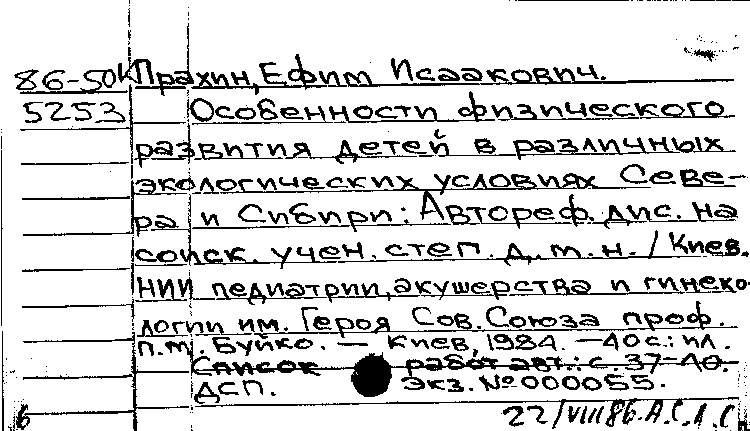 86-50к Прахин, Ефим Исаакович.
5253 Особенности физического
развития детей в различных
экологических условиях Севе-
ра и Сибири: Автореф. дис. на
соиск. учен. степ. д.м.н. / Киев.
НИИ педиатрии, акушерства и гинеко-
логии им. Героя Сов. Союза проф.
П.М. Буйко. — Киев, 1984. — 40 с.: ил.
Список работ авт.: с. 37-40.
ДСП. Экз. № 000055.
22/VIII86. А.С.Л.С
б